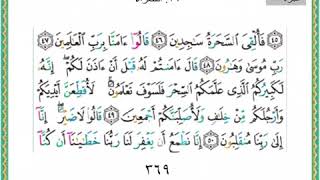 فَأُلْقِيَ السَّحَرَةُ سَاجِدِينَ ﴿٤٦﴾ قَالُوا آمَنَّا بِرَبِّ الْعَالَمِينَ ﴿٤٧﴾
رَبِّ مُوسَىٰ وَهَارُونَ ﴿٤٨﴾ قَالَ آمَنْتُمْ لَهُ قَبْلَ أَنْ آذَنَ لَكُمْ إِنَّهُ
لَكَبِيرُكُمُ الَّذِي عَلَّمَكُمُ السِّحْرَ فَلَسَوْفَ تَعْلَمُونَ لَأُقَطِّعَنَّ أَيْدِيَكُمْ
وَأَرْجُلَكُمْ مِنْ خِلَافٍ وَلَأُصَلِّبَنَّكُمْ أَجْمَعِينَ ﴿٤٩﴾ قَالُوا لَا ضَيْرَ إِنَّا
إِلَىٰ رَبِّنَا مُنْقَلِبُونَ ﴿٥٠﴾ إِنَّا نَطْمَعُ أَنْ يَغْفِرَ لَنَا رَبُّنَا خَطَايَانَا أَنْ كُنَّا
٣٦٩